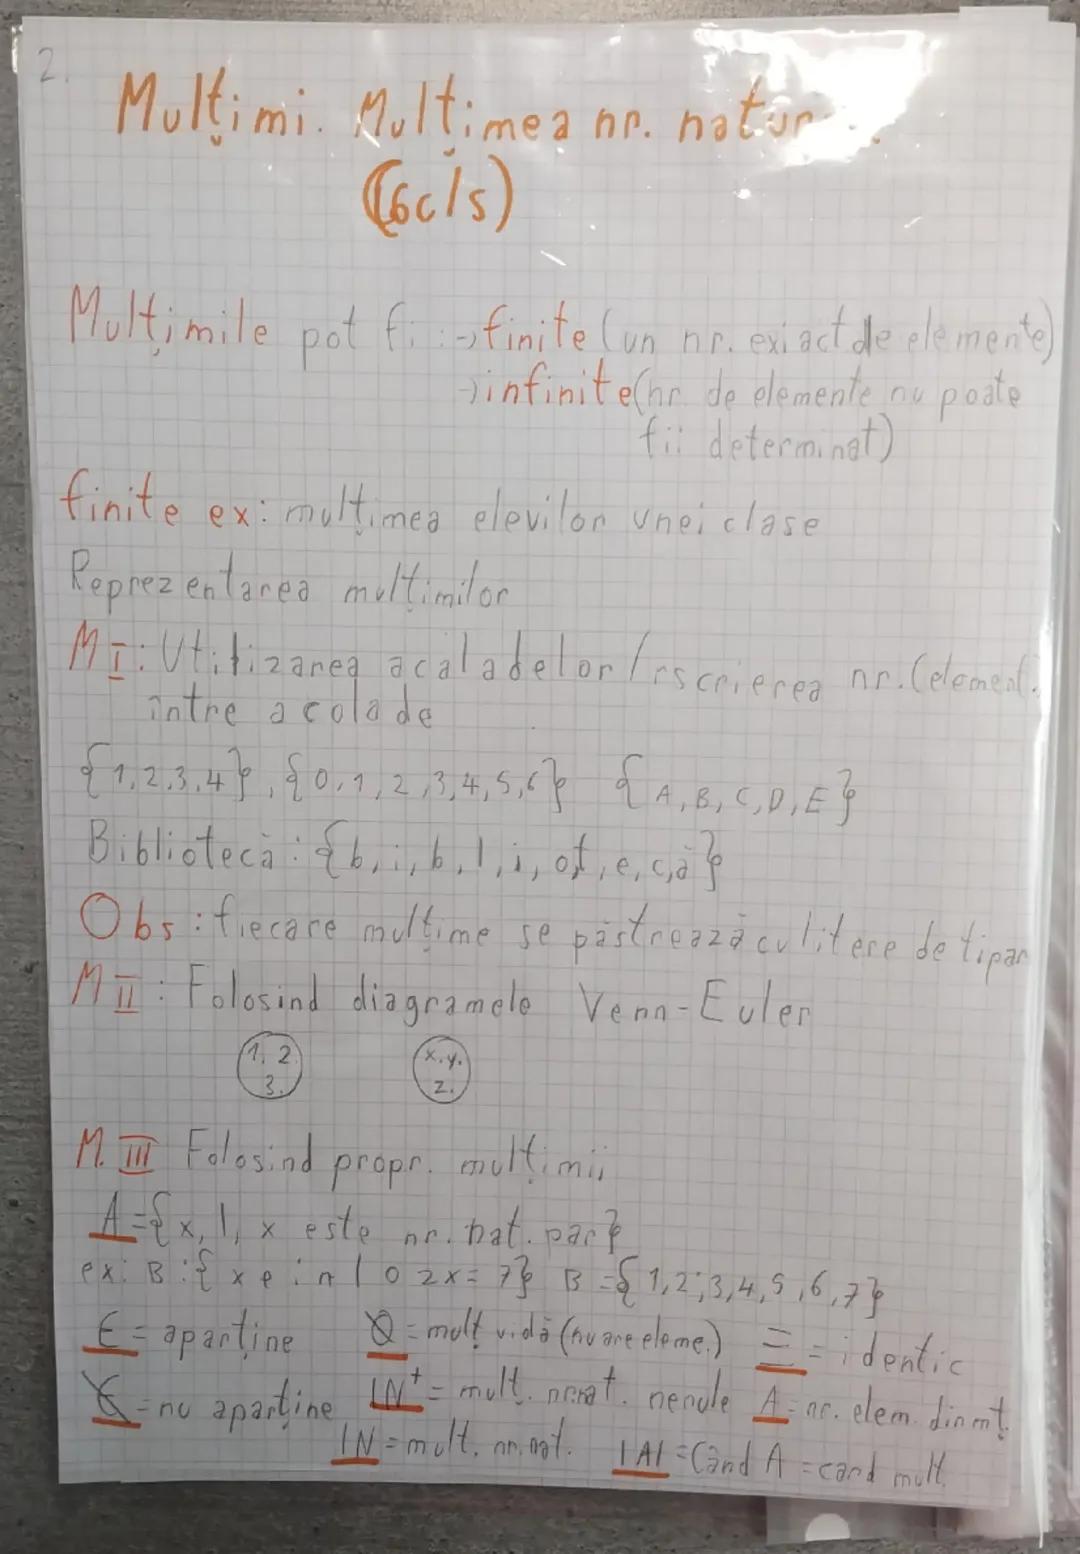 2.
Mulțimi. Mulțimea nr. natur
(6cls)
Mulțimile pot fi: →finite (un nr. exiact de elemente)
→infinite(nr. de elemente nu poate
fii determinat)
finite ex: mulțimea elevilor unei clase
Reprezentarea mulțimilor
M I: Utilizarea acaladelor / rscrierea nr. (element.
între acolade
{1,2,3,4}, {0,1,2,3,4,5,6} {A,B,C,D,E}
Bibliotecă: {b,i,b,l,i,o,t,e,c,ă}
Obs: fiecare mulțime se păstrează cu litere de tipar
M II: Folosind diagramele Venn-Euler
1. 2. x. y.
3. z.
M. III Folosind propr. mulțimii
A={x, |, x este nr. nat. par}
ex: B:{ x e in | 0 2x= 7} B ={1,2;3,4,5,6,7}
∈ = aparține Ø = mulț vidă (nu are eleme.) ≡ = identic
∉ = nu aparține IN⁺ = mulț. nr.nat. nenule A = nr. elem. din mț.
IN = mulț. nr. nat. |A| = Cand A = card mulț.